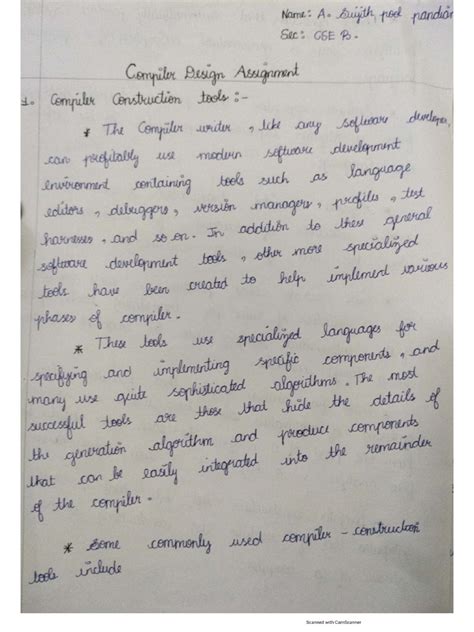 Name: A. Sujith pool pandian
Sec: CSE B.
Compiler Design Assignment
1. Compiler Construction tools :-
* The Compiler writer, like any software developer,
can profitably use modern software development
environment containing tools such as language
editors, debuggers, version managers, profiles, test
harnesses, and so on. In addition to these general
software development tools, other more specialized
tools have been created to help implement various
phases of compiler.
* These tools use specialized languages for
specifying and implementing specific components, and
many use quite sophisticated algorithms. The most
successful tools are those that hide the details of
the generation algorithm and produce components
that can be easily integrated into the remainder
of the compiler.
* Some commonly used compiler - construction
tools include
Scanned with CamScanner